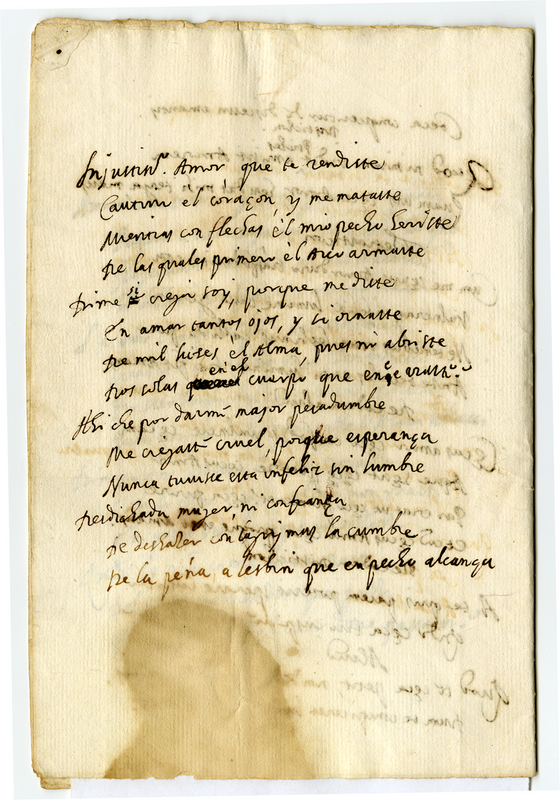 Injustiss.º Amor que te rendiste
Cautivo el coraçon, y me mataste
Mientras con flechas el mio pecho heriste
De las quales primero el Arco armaste
Dime si creja soj, porque me diste
En amar tantos ojos, y si ornaste
De mil luses el Alma, pues ni abriste
Dos solas en el cuerpo que
Ahi che por darme major pesadumbre
Me crejaste cruel, porque esperança
Nunca tuviste esta infeliz sin lumbre
Desdichada mujer, ni confiança
De deshazer con lagrimas la cumbre
De la peña, a Lesbin que en pecho alcança